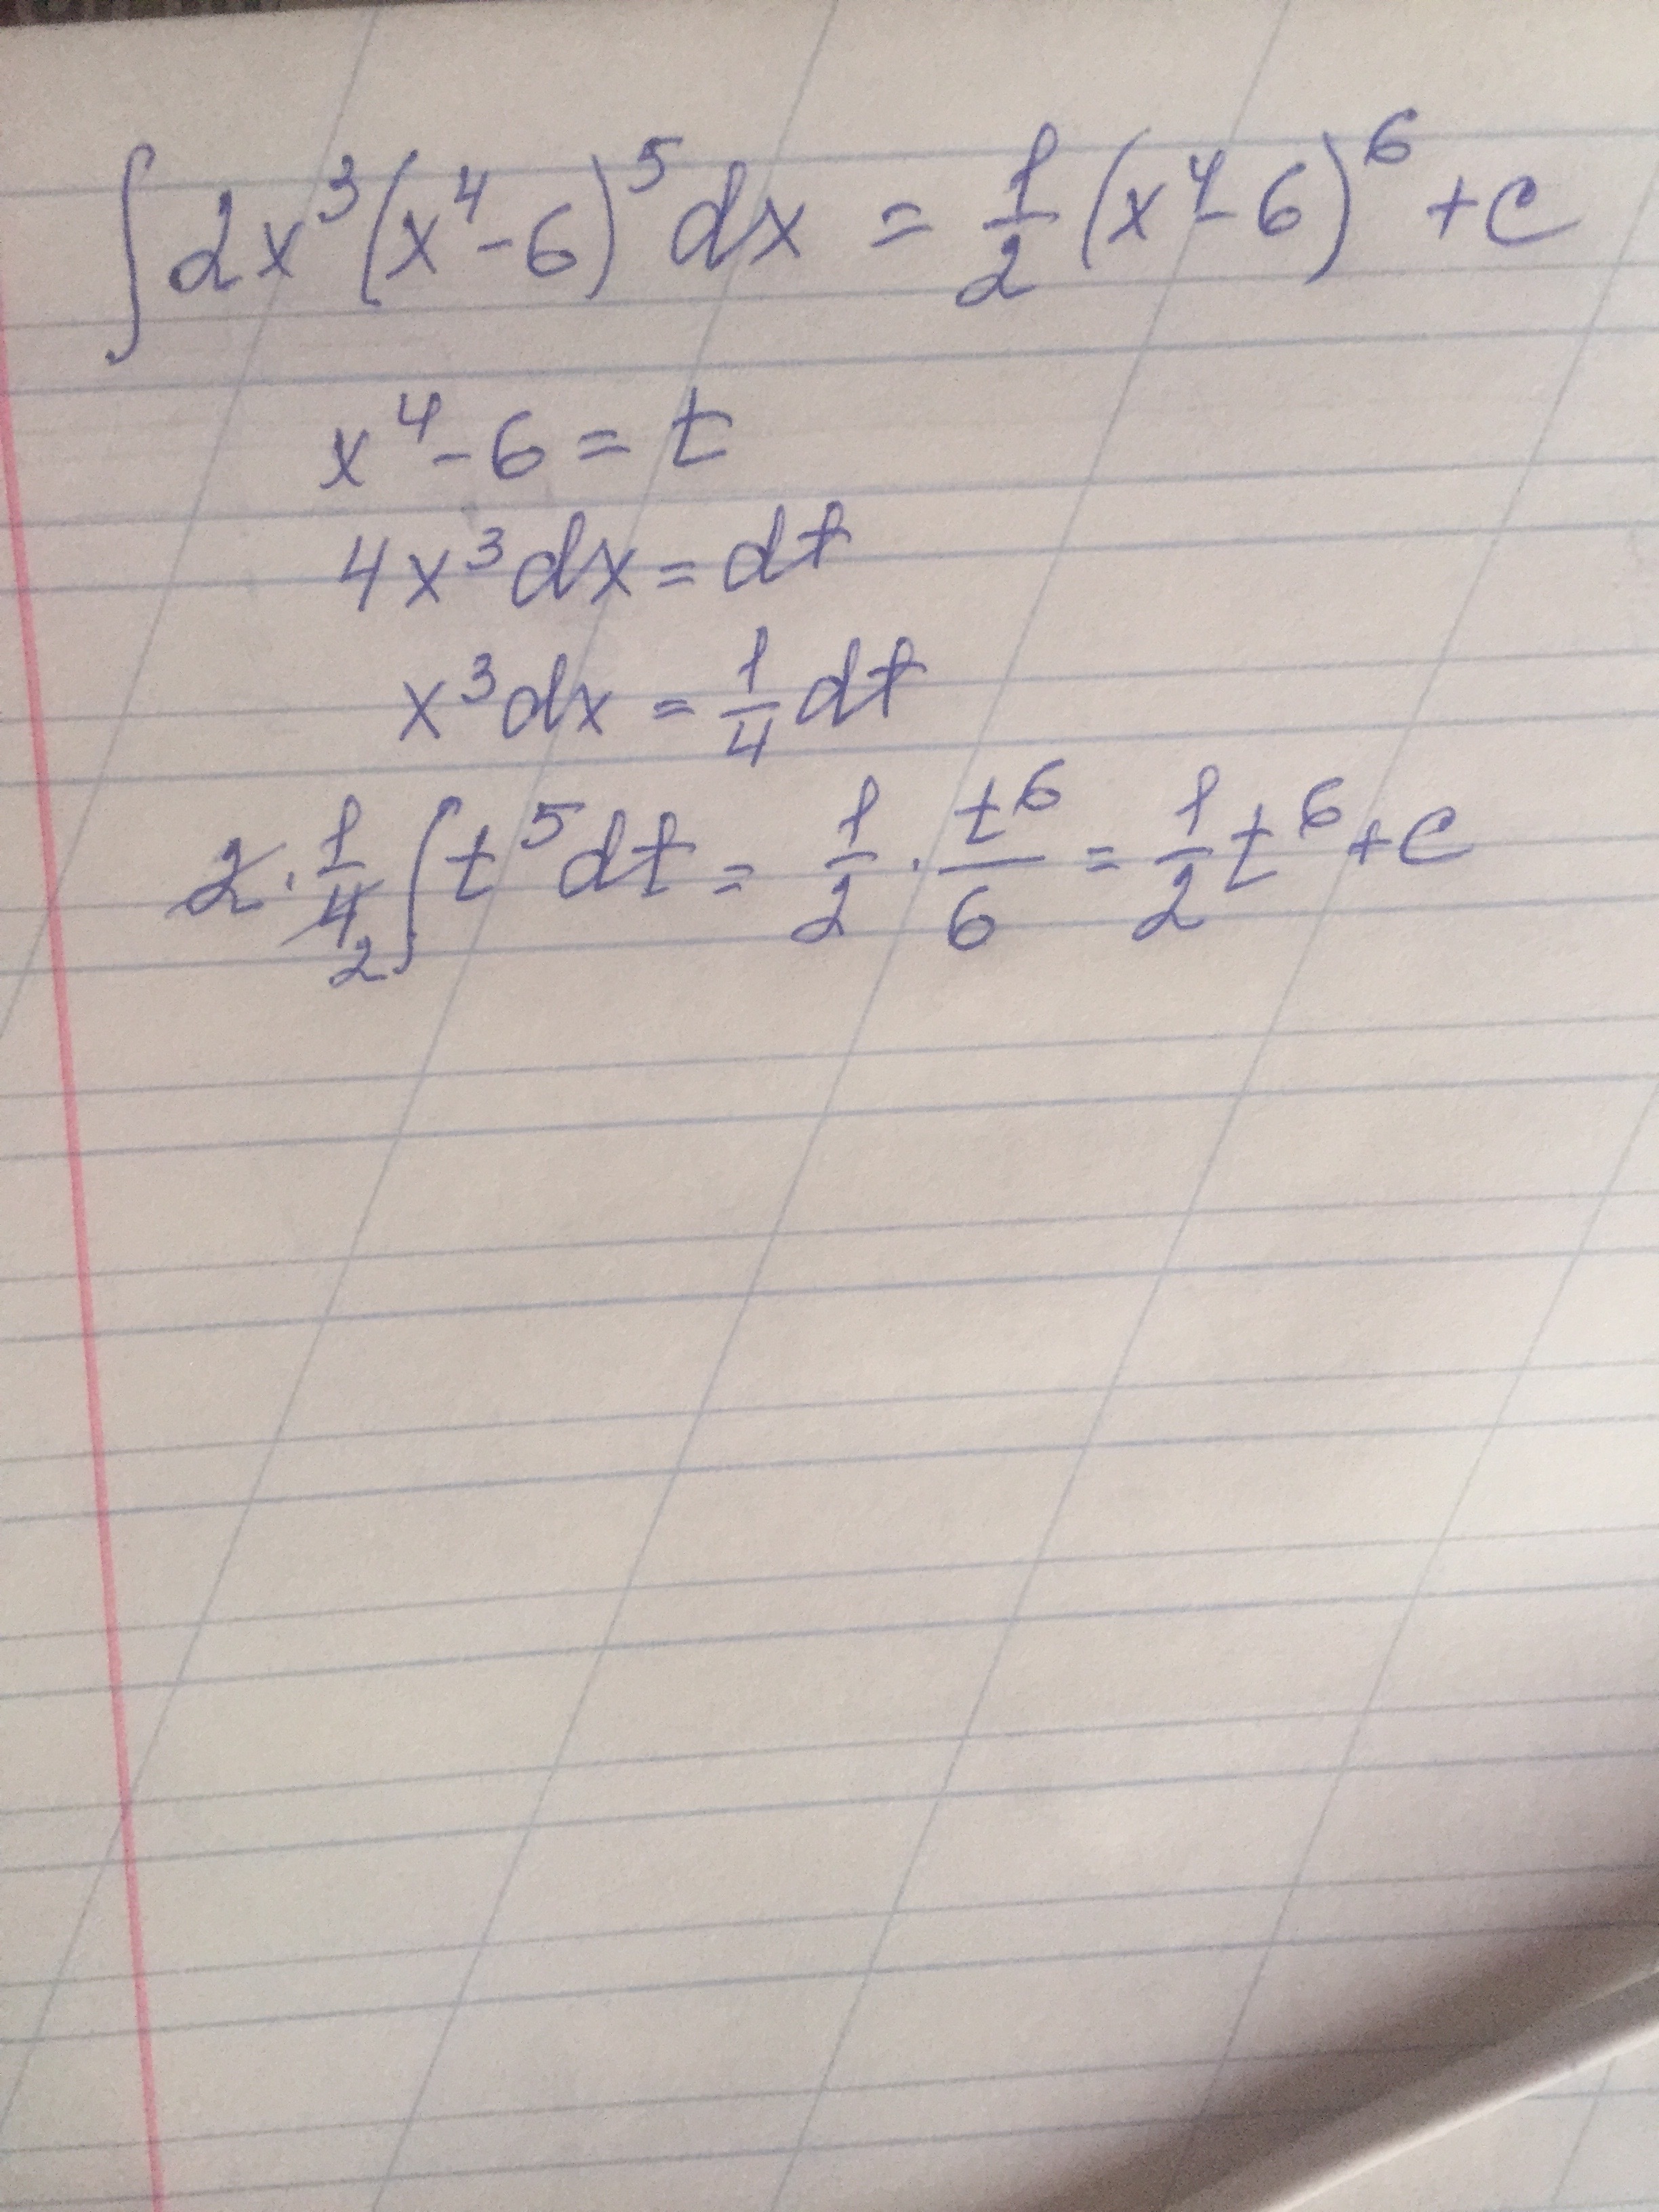 ∫2x³(x⁴-6)⁵dx = 1/2 (x⁴-6)⁶+c
x⁴-6 = t
4x³dx = dt
x³dx = 1/4 dt
2 · 1/4 2 ∫t⁵dt = 1/2 · t⁶/6 = 1/2 t⁶+c